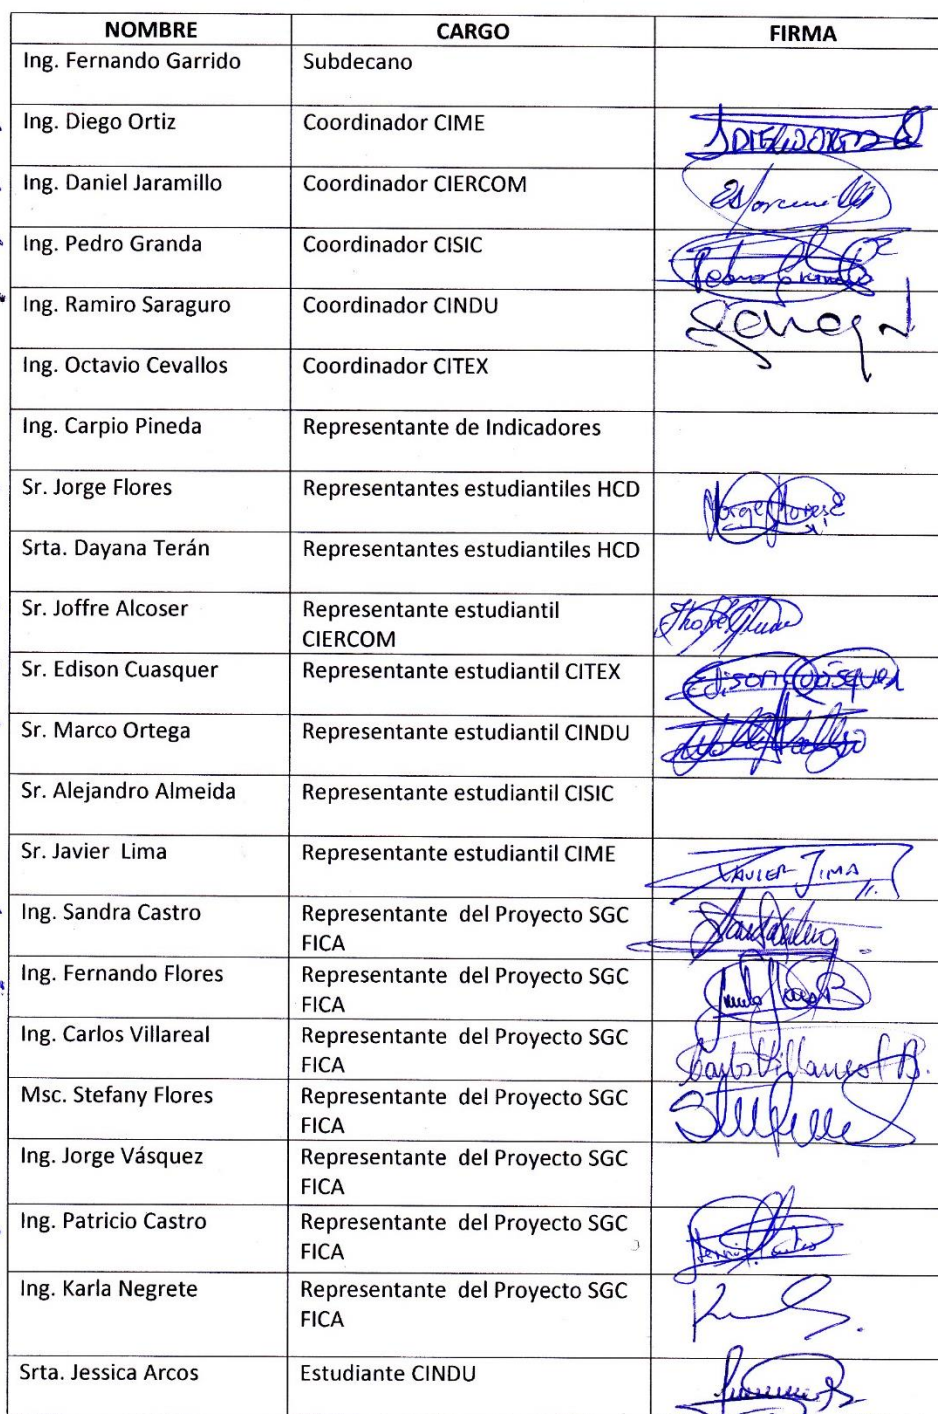 NOMBRE CARGO FIRMA
Ing. Fernando Garrido Subdecano
Ing. Diego Ortiz Coordinador CIME DIEGO ORTIZ
Ing. Daniel Jaramillo Coordinador CIERCOM
Ing. Pedro Granda Coordinador CISIC Pedro Granda
Ing. Ramiro Saraguro Coordinador CINDU
Ing. Octavio Cevallos Coordinador CITEX
Ing. Carpio Pineda Representante de Indicadores
Sr. Jorge Flores Representantes estudiantiles HCD Jorge Flores
Srta. Dayana Terán Representantes estudiantiles HCD
Sr. Joffre Alcoser Representante estudiantil
CIERCOM
Sr. Edison Cuasquer Representante estudiantil CITEX Edison Cuásquer
Sr. Marco Ortega Representante estudiantil CINDU
Sr. Alejandro Almeida Representante estudiantil CISIC
Sr. Javier Lima Representante estudiantil CIME XAVIER LIMA
Ing. Sandra Castro Representante del Proyecto SGC
FICA
Ing. Fernando Flores Representante del Proyecto SGC
FICA
Ing. Carlos Villareal Representante del Proyecto SGC
FICA Carlos Villarreal B.
Msc. Stefany Flores Representante del Proyecto SGC
FICA
Ing. Jorge Vásquez Representante del Proyecto SGC
FICA
Ing. Patricio Castro Representante del Proyecto SGC
FICA
Ing. Karla Negrete Representante del Proyecto SGC
FICA
Srta. Jessica Arcos Estudiante CINDU